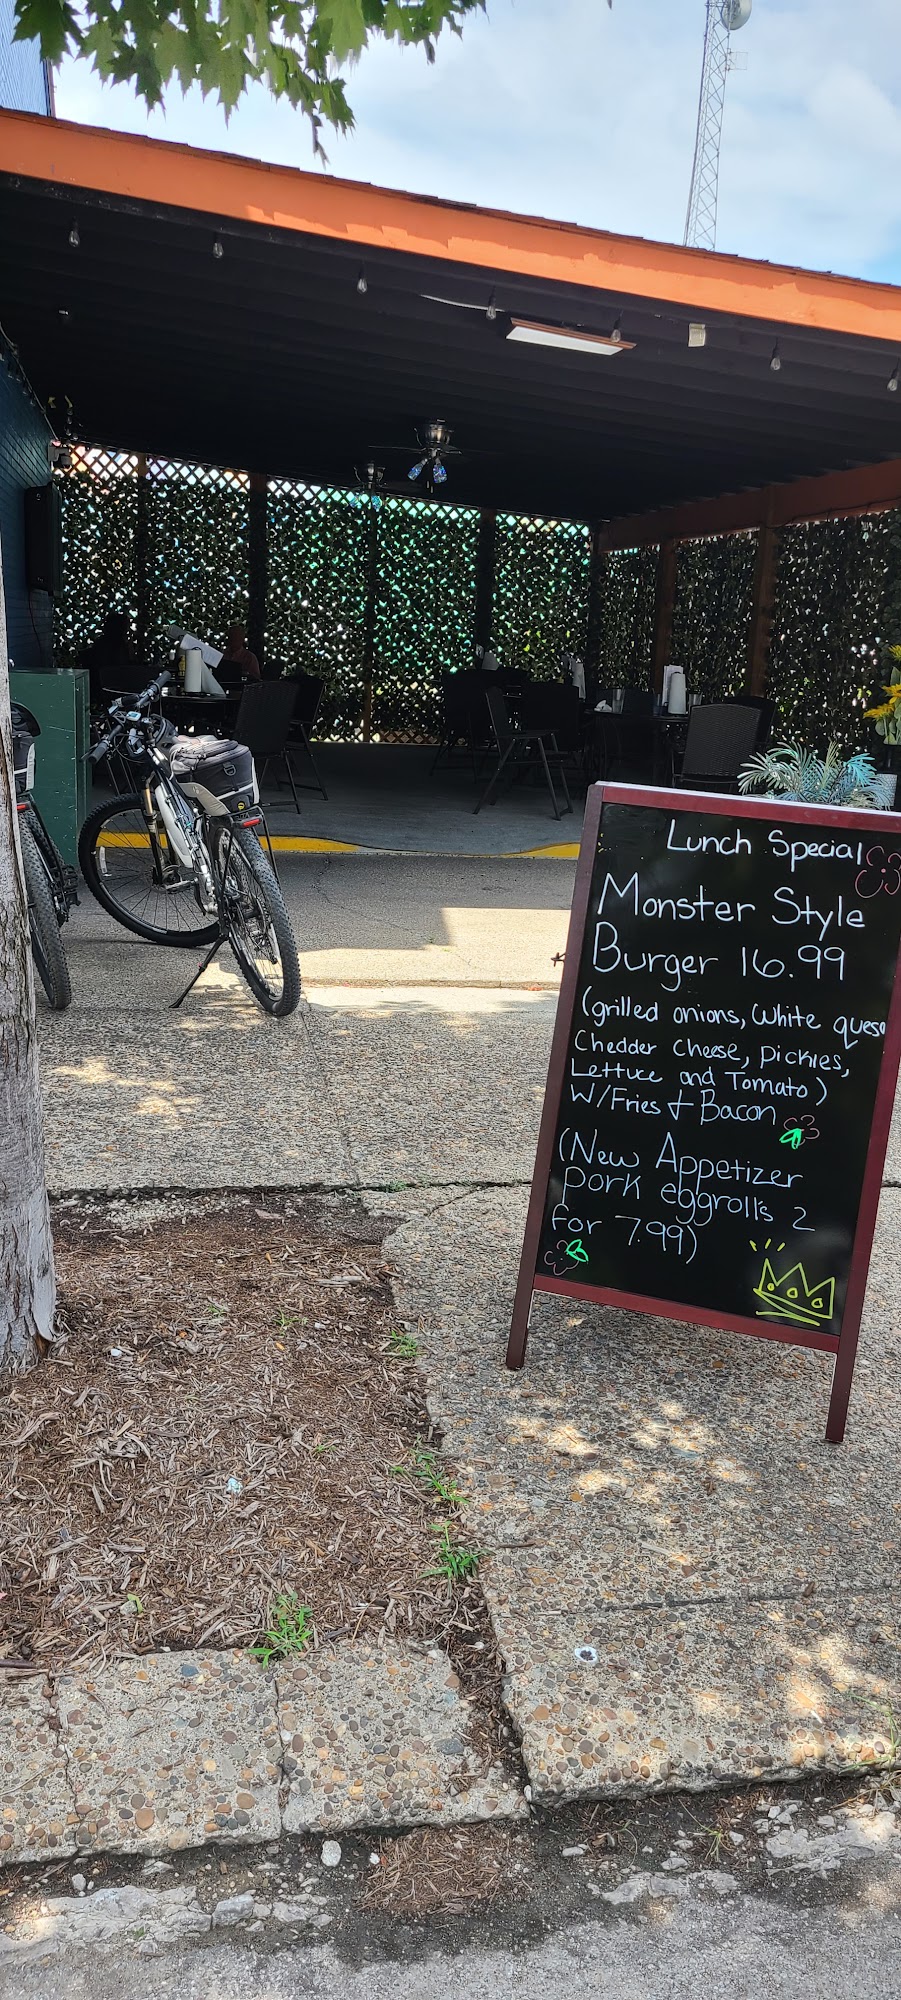 Lunch Special
Monster Style
Burger 16.99
(grilled onions, White queso
Chedder Cheese, pickles,
Lettuce and Tomato)
W/Fries + Bacon
(New Appetizer
pork eggrolls 2
for 7.99)